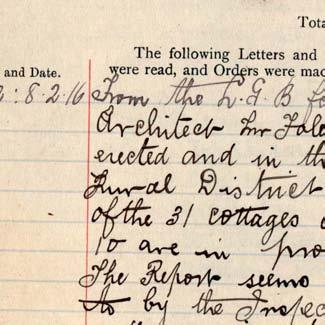 Tota
The following Letters and
and Date.
were read, and Orders were mad
: 8.2.16 From the L.G.B fo
Architect Mr
erected and in th
Rural District
of the 31 cottages
10 are in pro
The Report seems
to by the Inspec